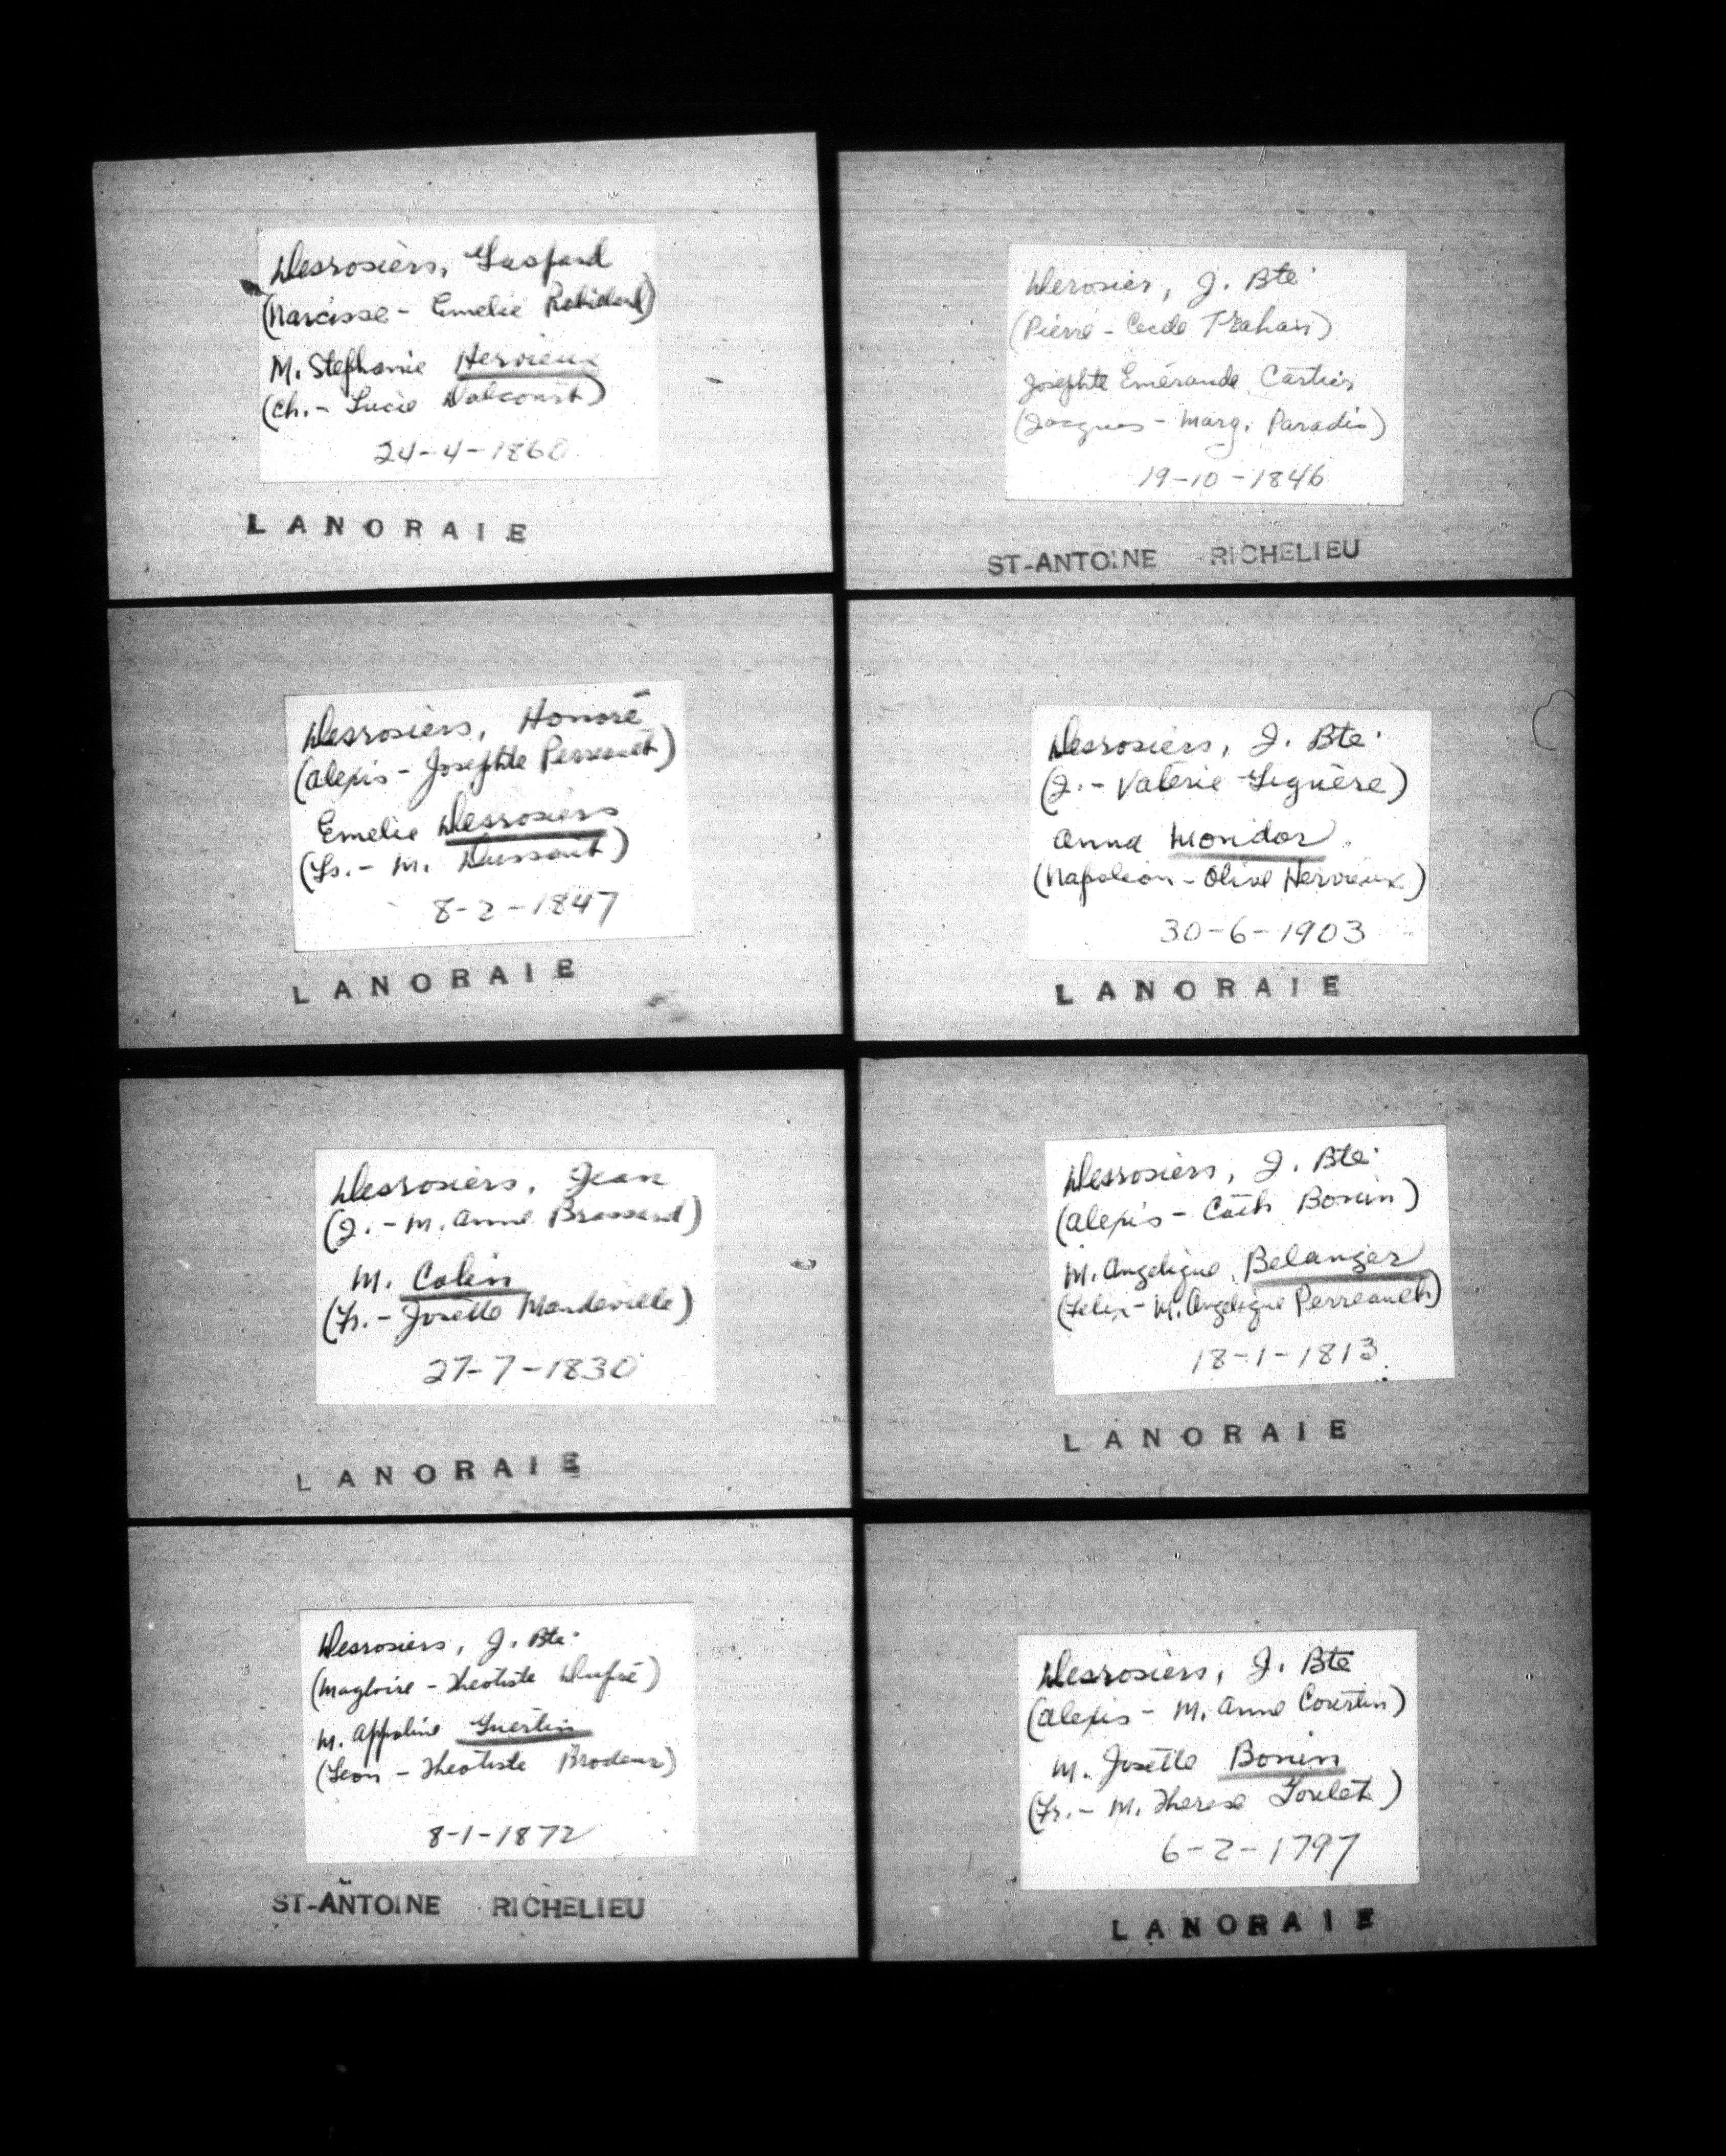 Desrosiers, Gaspard
(Narcisse - Emelie Robillard)
M. Stephanie Hervieux
(Ch. - Lucie Dalcourt)
24-4-1860
LANORAIE
Desrosiers, Honoré
(Alexis - Josephte Perreault)
Emelie Desrosiers
(Ls. - M. Dussault)
8-2-1847
LANORAIE
Desrosiers, Jean
(J. - M. Anne Brassard)
M. Colin
(Fr. - Josette Mandeville)
27-7-1830
LANORAIE
Desrosiers, J. Bte.
(Magloire - Theotiste Dupré)
M. Appoline Guertin
(Leon - Theotiste Brodeur)
8-1-1872
ST-ANTOINE RICHELIEU
Derosier, J. Bte.
(Pierre - Cecile Trahan)
Josephte Emérande Cartier
(Jacques - Marg. Paradis)
19-10-1846
ST-ANTOINE RICHELIEU
Desrosiers, J. Bte.
(J. - Valérie Liguère)
Anna Mondor
(Napoleon - Olive Hervieux)
30-6-1903
LANORAIE
Desrosiers, J. Bte.
(Alexis - Cath Bonin)
M. Angelique Belanger
(Felix - M. Angelique Perreault)
18-1-1813
LANORAIE
Desrosiers, J. Bte
(Alexis - M. Anne Courtin)
M. Josette Bonin
(Fr. - M. Therese Goulet)
6-2-1797
LANORAIE